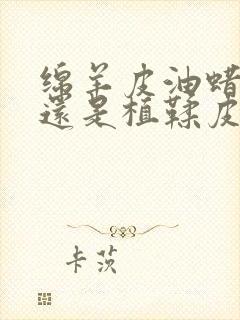 绵羊皮油蜡
還是植鞣皮
卡茨